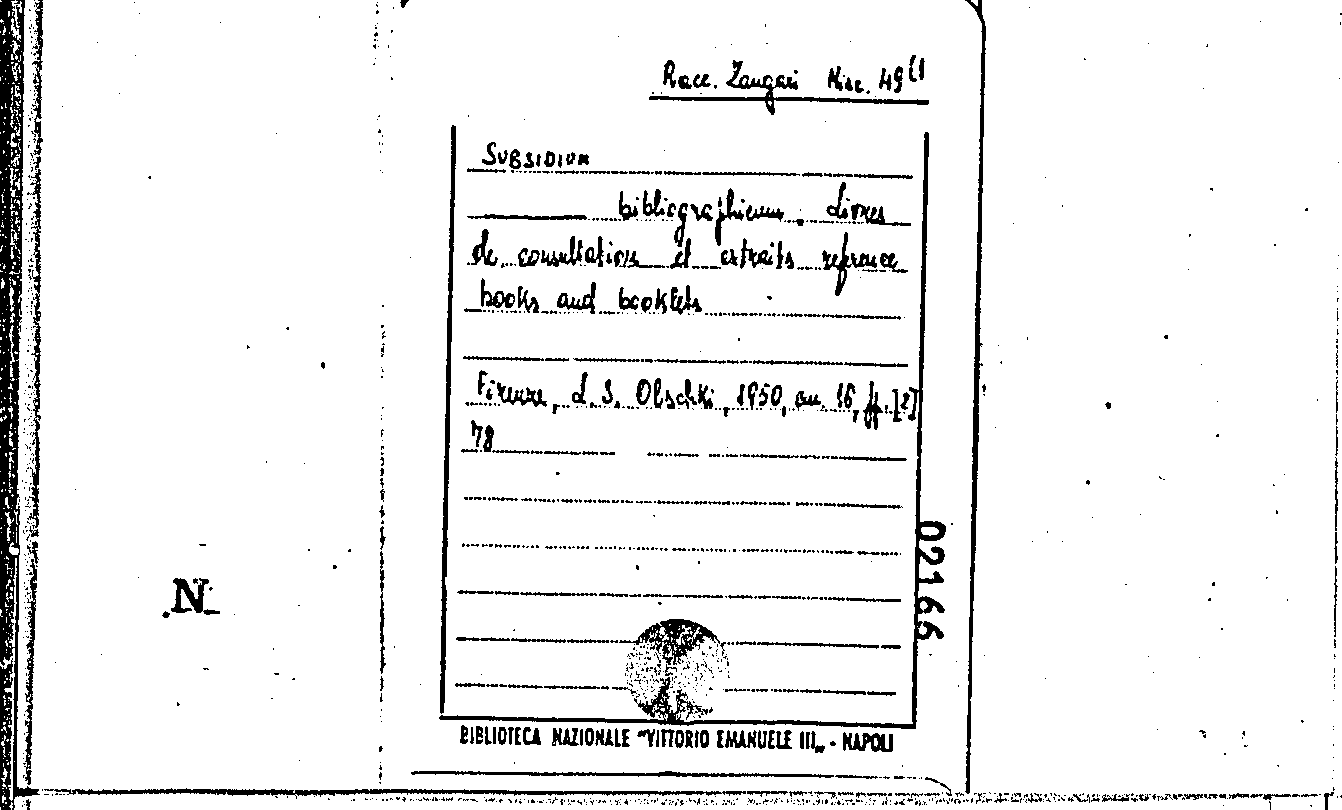 Racc. Zangari Misc. 49(1
SUBSIDIUM
bibliographicum. Livres
de consultation et extraits reference
books and booklets
Firenze, L. S. Olschki, 1950, in 16, ff. [2]
78
02166
N
BIBLIOTECA NAZIONALE "VITTORIO EMANUELE III„ - NAPOLI